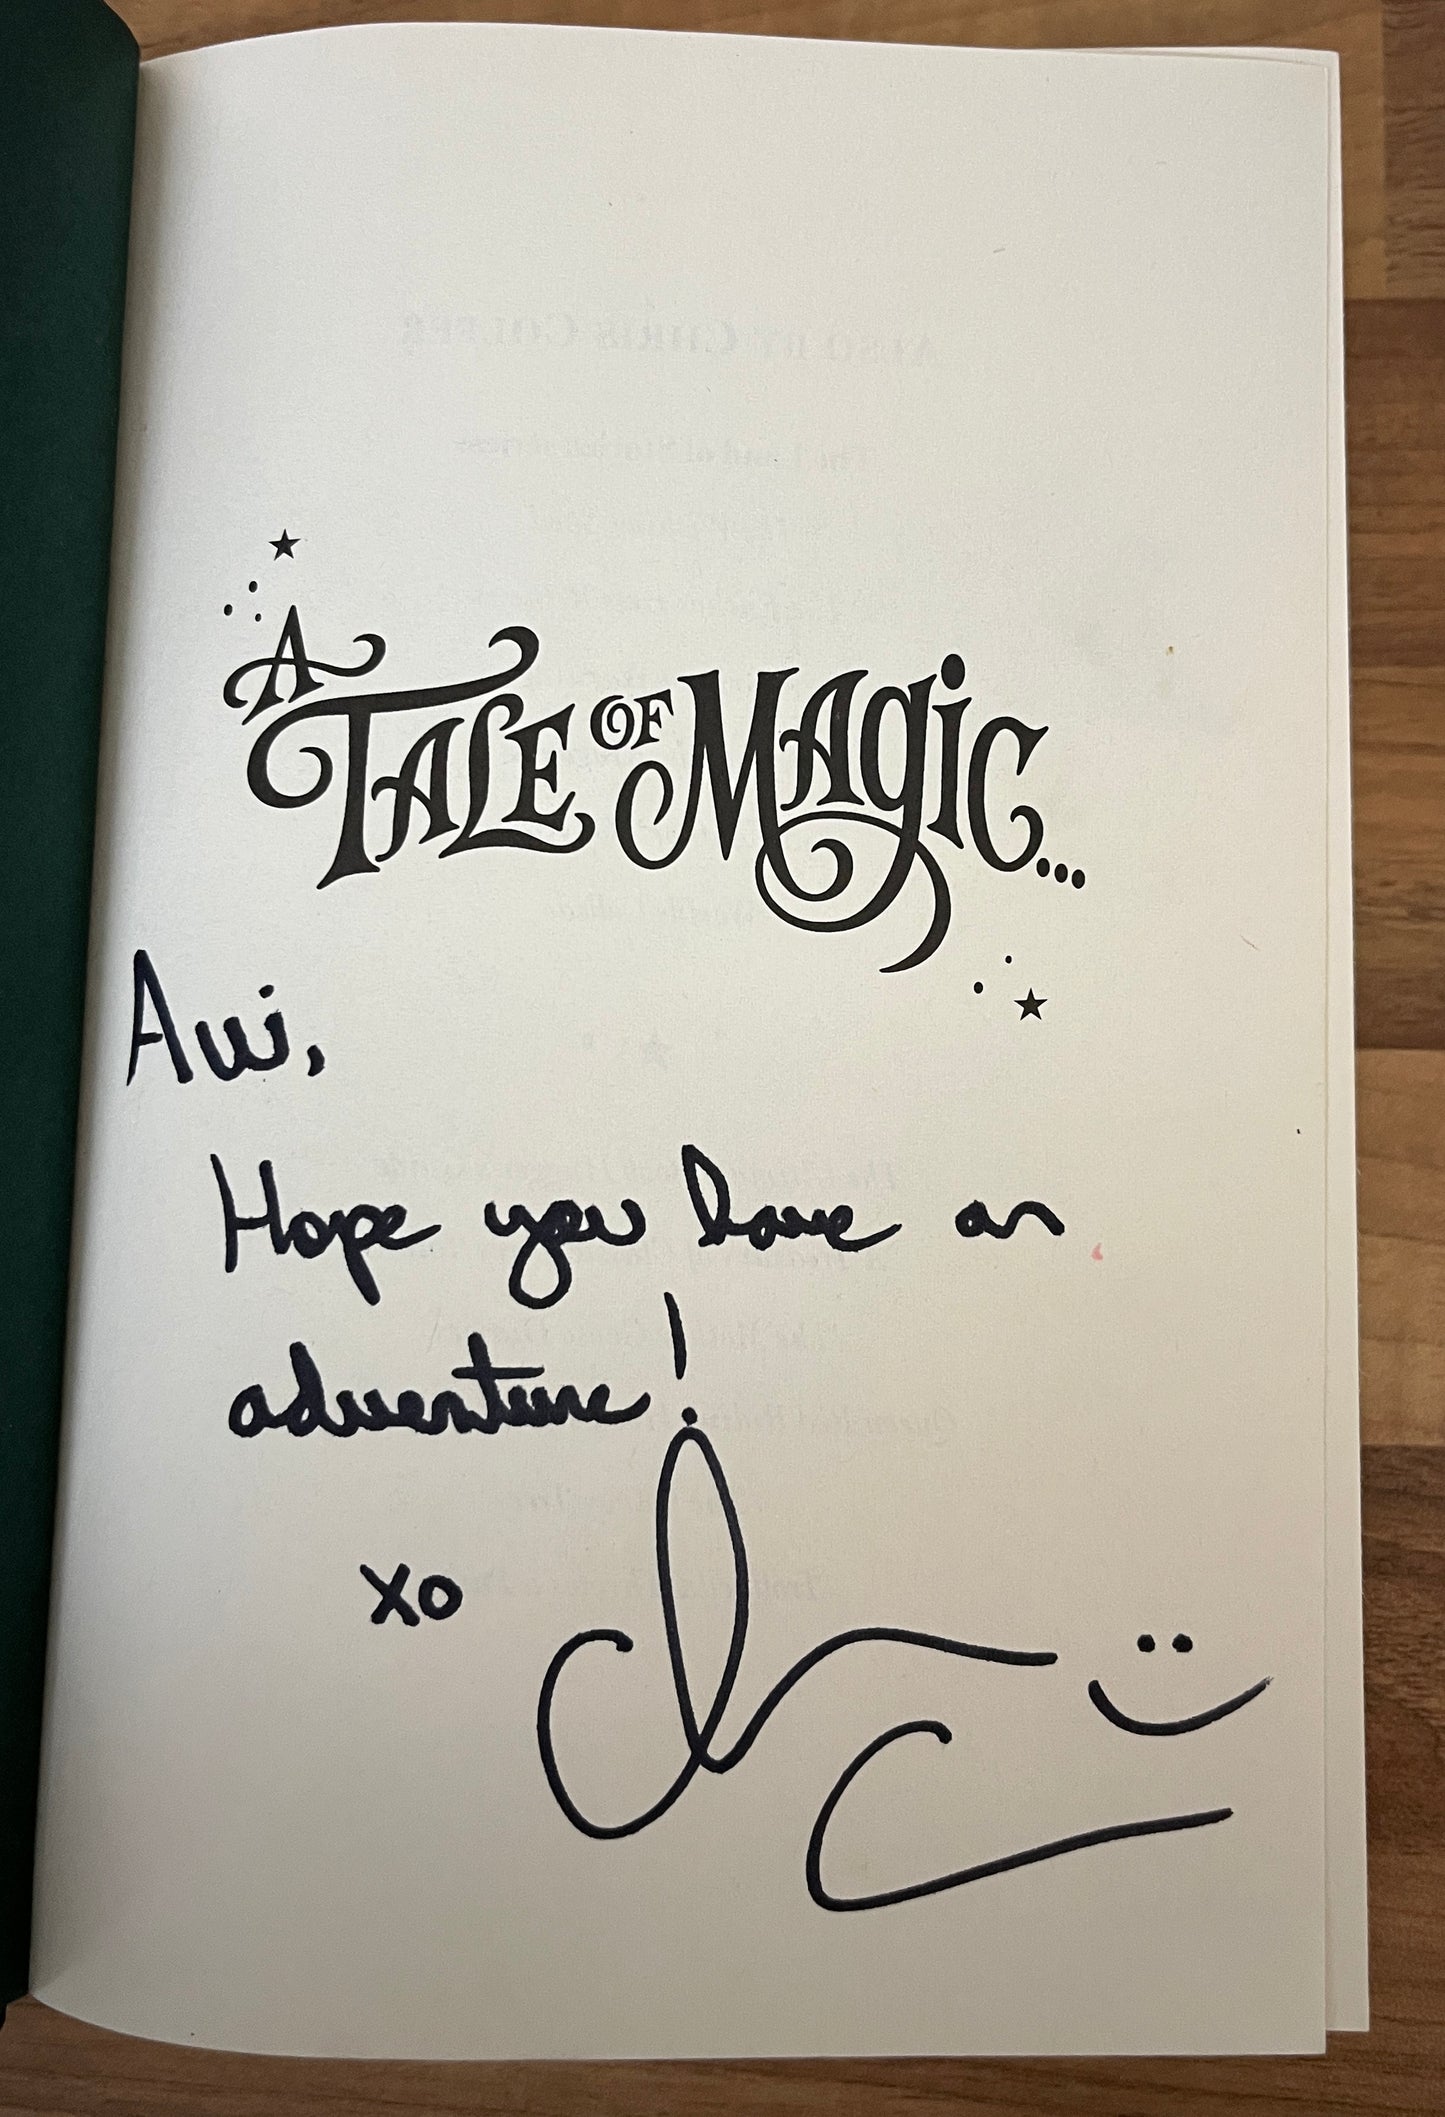 A
TALE OF MAGIC...
Avi,
Hope you have an
adventure!
xo